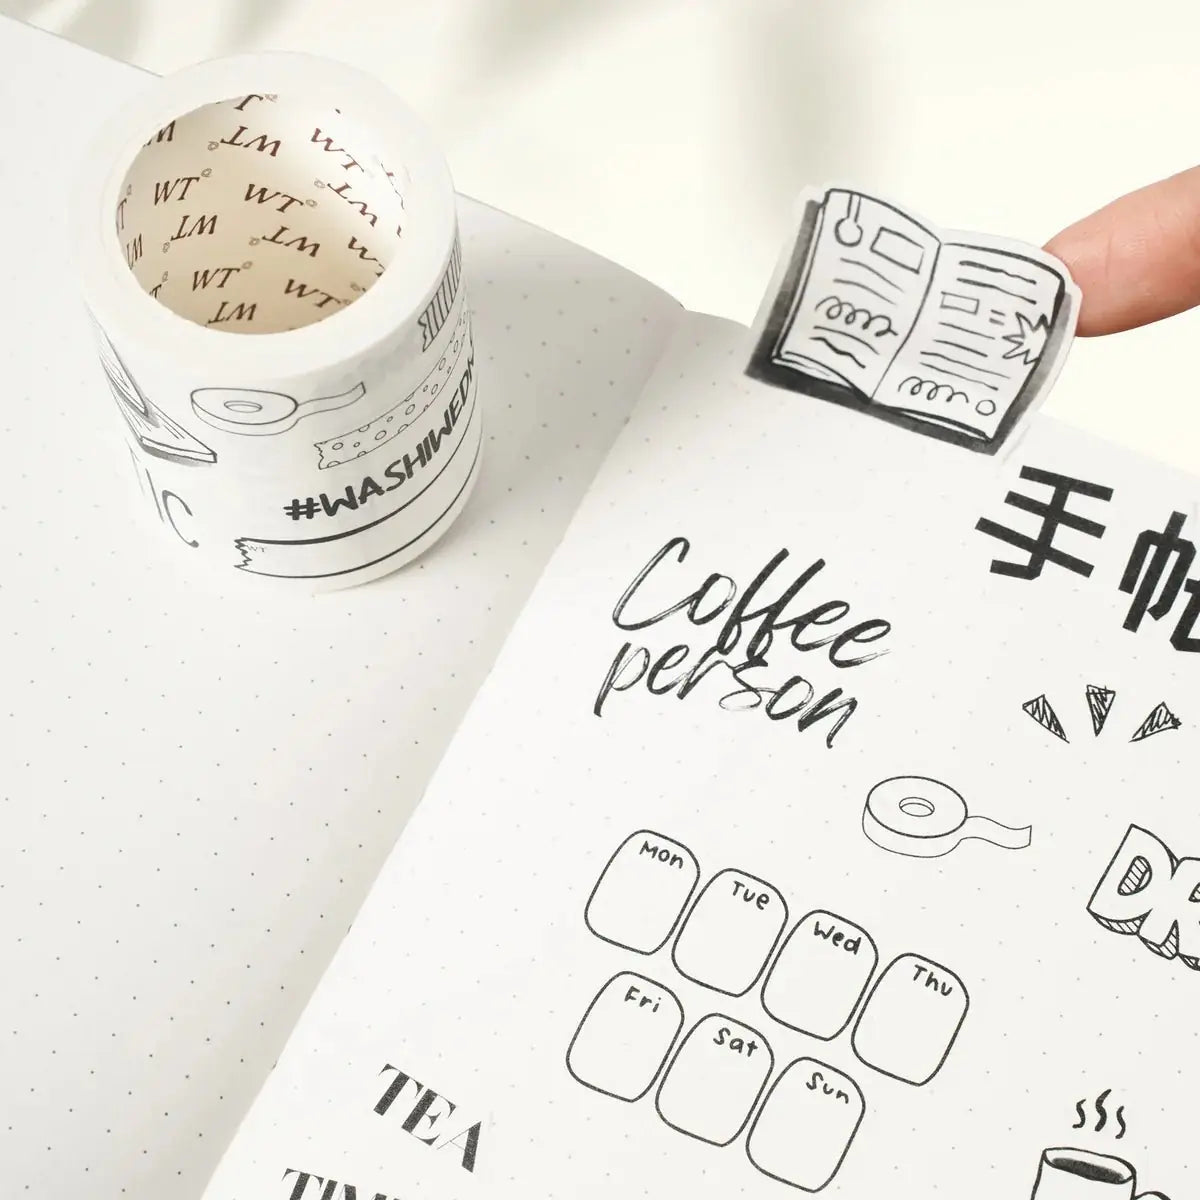 WT
WT
WT
WT
WT
WT
WT
WT
WT
#WASHIWED
手帐
Coffee
person
Mon
Tue
Wed
Thu
Fri
Sat
Sun
TEA